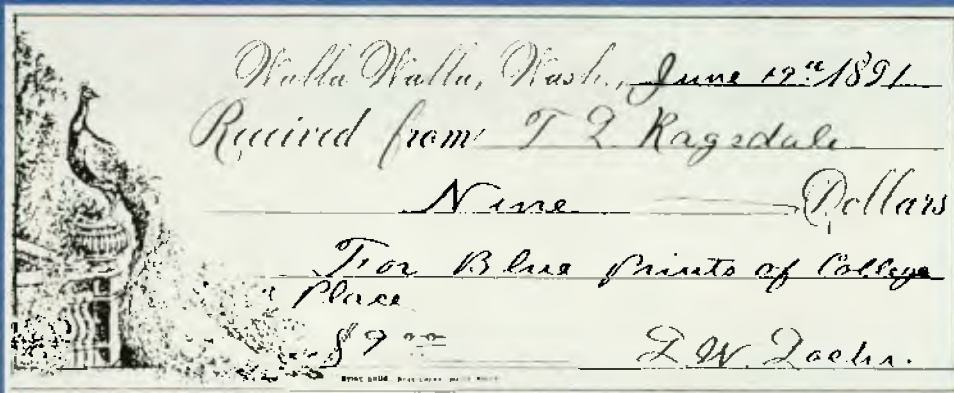 Walla Walla, Wash., June 19th 1891
Received from T L Ragsdale
Nine Dollars
For Blue prints of College
Place
$9.00
L W.